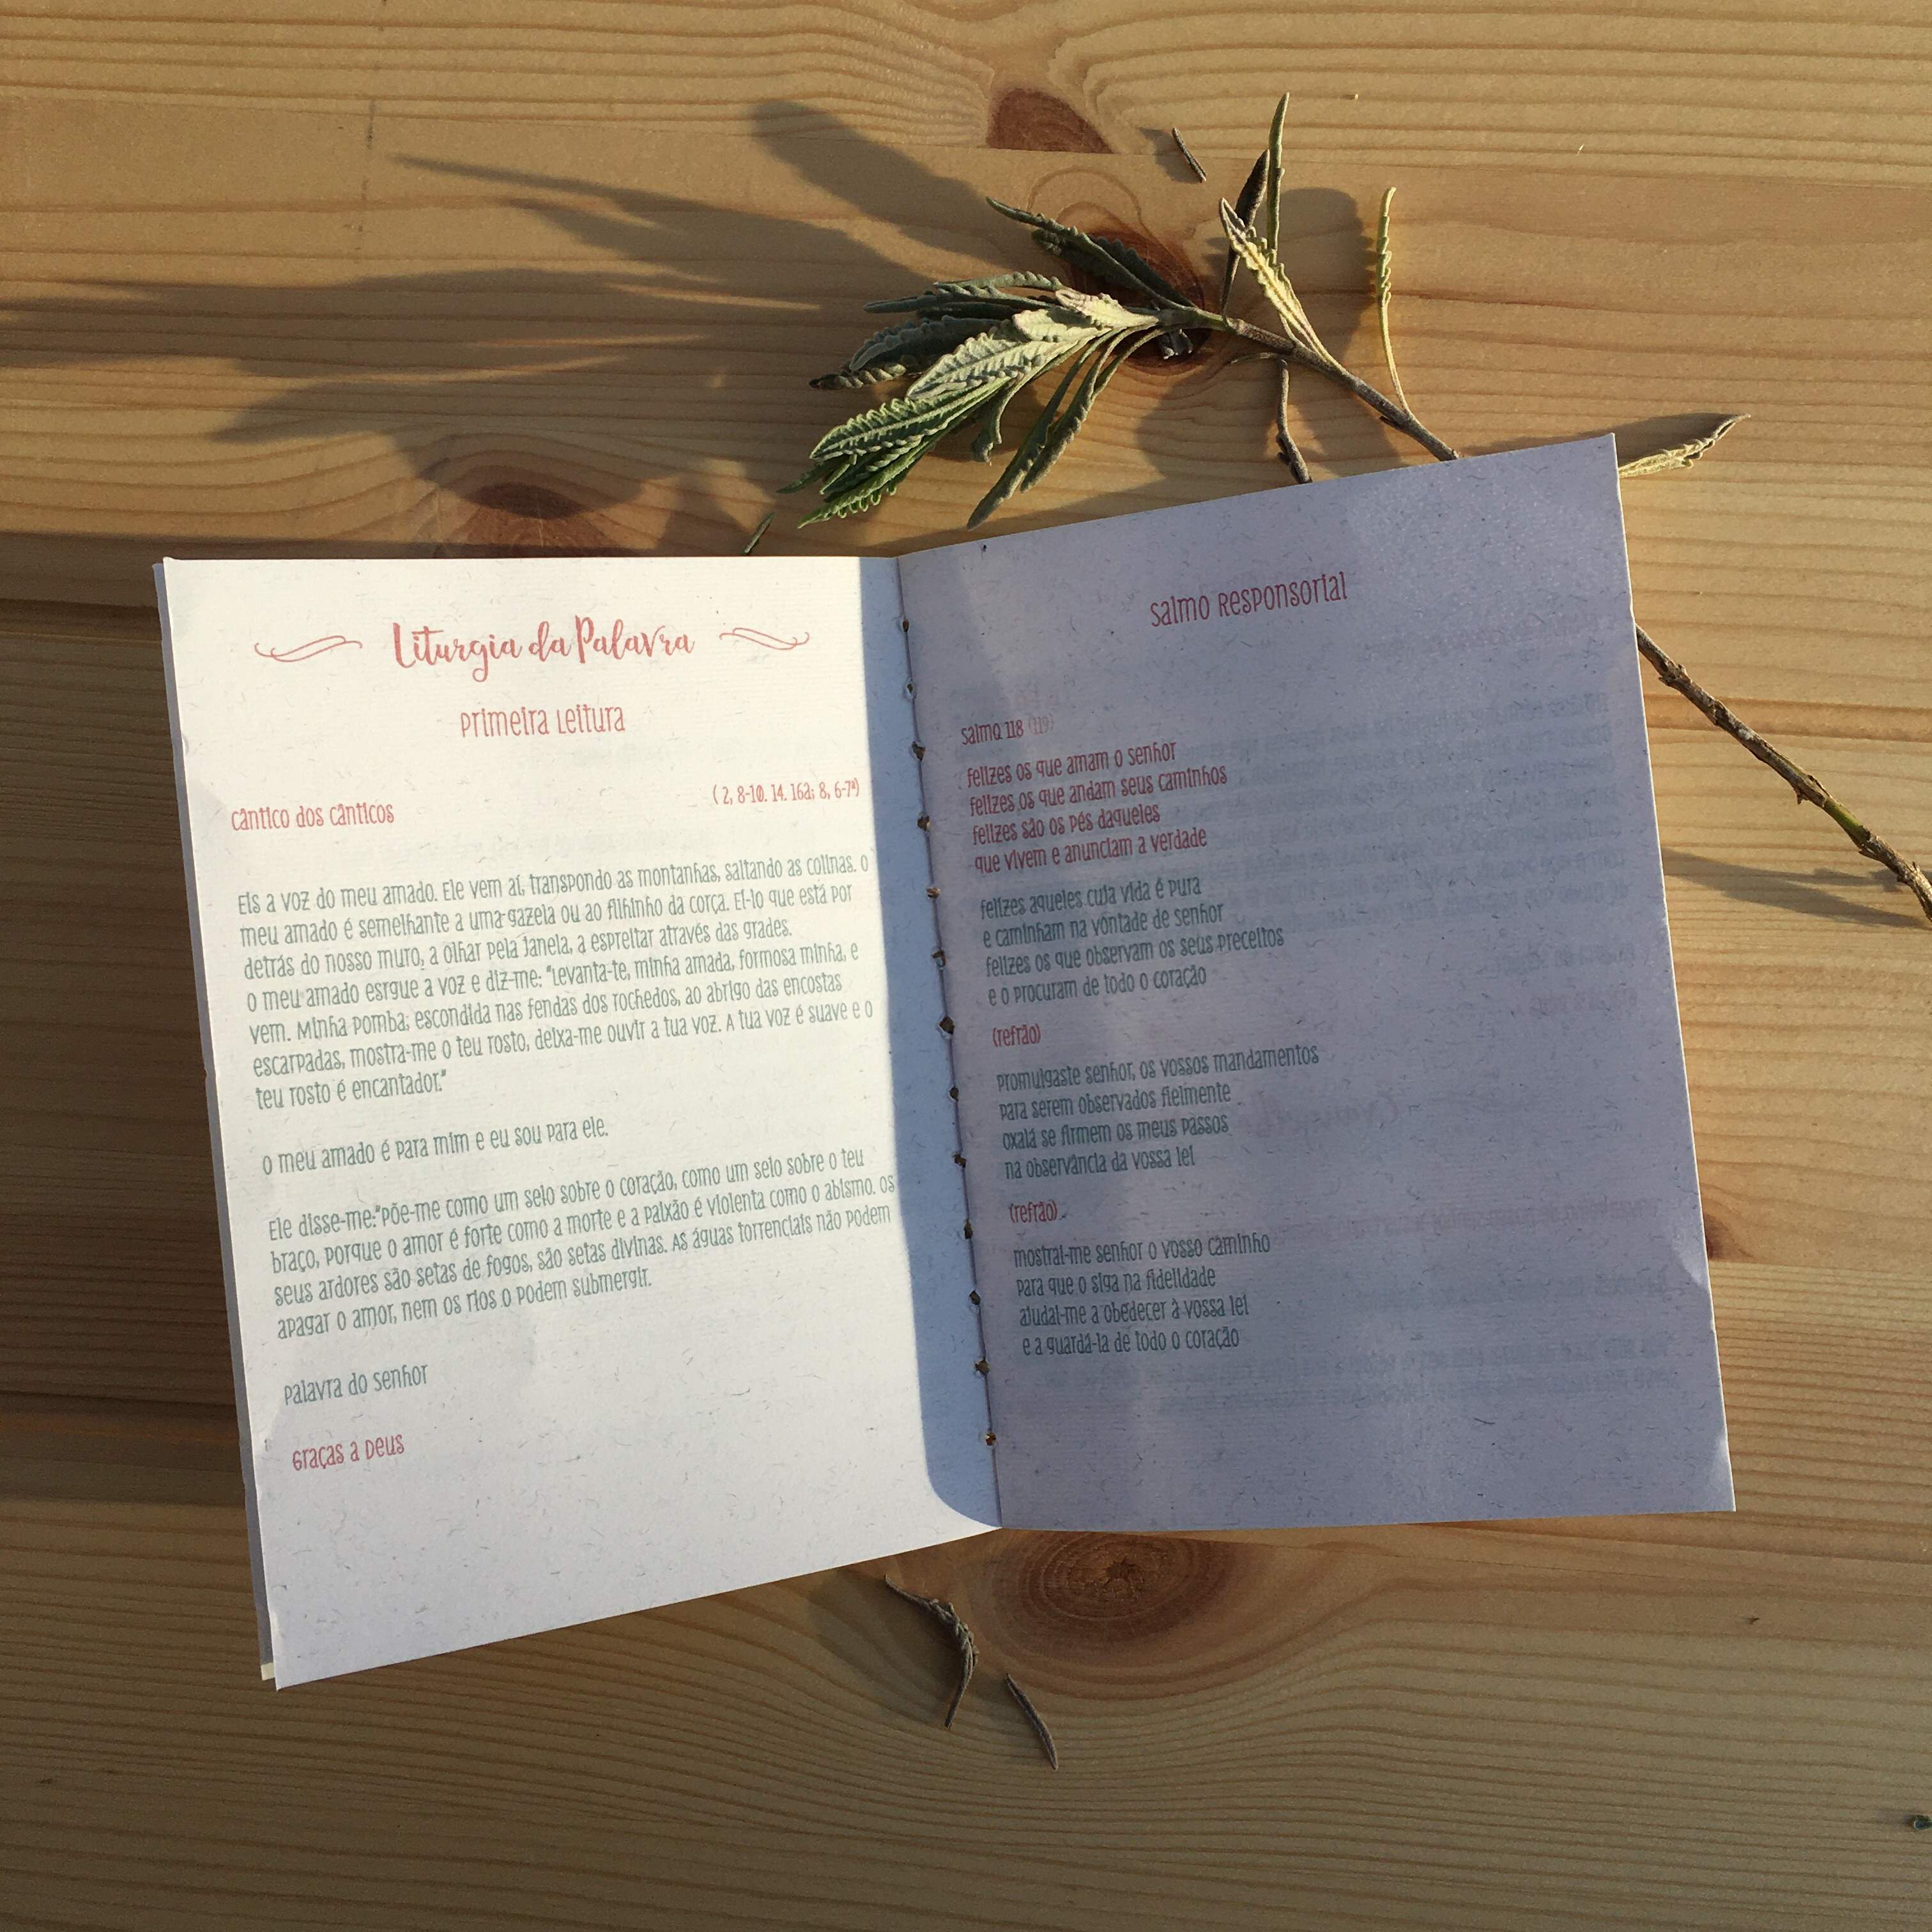 Liturgia da Palavra
Primeira Leitura
Cântico dos Cânticos
( 2, 8-10. 14. 16a; 8, 6-7ª)
Eis a voz do meu amado. Ele vem aí, transpondo as montanhas, saltando as colinas. O
meu amado é semelhante a uma gazela ou ao filhinho da corça. Ei-lo que está por
detrás do nosso muro, a olhar pela janela, a espreitar através das grades.
O meu amado esrgue a voz e diz-me: "Levanta-te, minha amada, formosa minha, e
vem. Minha pomba; escondida nas fendas dos rochedos, ao abrigo das encostas
escarpadas, mostra-me o teu rosto, deixa-me ouvir a tua voz. A tua voz é suave e o
teu rosto é encantador."
O meu amado é para mim e eu sou para ele.
Ele disse-me:"Põe-me como um selo sobre o coração, como um selo sobre o teu
braço, porque o amor é forte como a morte e a paixão é violenta como o abismo. Os
seus ardores são setas de fogos, são setas divinas. As águas torrenciais não podem
apagar o amor, nem os rios o podem submergir.
Palavra do senhor
Graças a Deus
Salmo Responsorial
Salmo 118 (119)
felizes os que amam o senhor
felizes os que andam seus caminhos
felizes são os pés daqueles
que vivem e anunciam a verdade
felizes aqueles cuja vida é pura
e caminham na vontade de senhor
felizes os que observam os seus preceitos
e o procuram de todo o coração
(refrão)
promulgaste senhor, os vossos mandamentos
para serem observados fielmente
oxalá se firmem os meus passos
na observância da vossa lei
(refrão)
mostrai-me senhor o vosso caminho
para que o siga na fidelidade
ajudai-me a obedecer à vossa lei
e a guardá-la de todo o coração